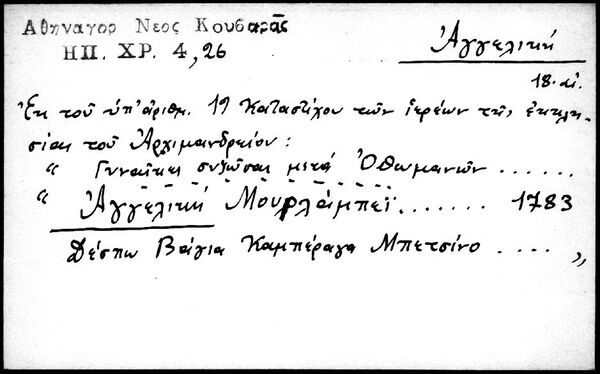 Αθηναγορ Νεος Κουβαρᾶς
ΗΠ. ΧΡ. 4,26
Ἀγγελική
18. αἰ.
Ἐκ τοῦ ὑπ' ἀριθμ. 19 Καταστίχου τῶν ἱερέων τῆς ἐκκλη-
σίας τοῦ Ἀρχιμανδρείου:
“ Γυναῖκες συζῶσαι μετὰ Ὀθωμανῶν ......
“ Ἀγγελική Μουρλάμπεϊ ....... 1783
Δέσπω Βάγια Καμπέραγα Μπετσίνο .... ,,